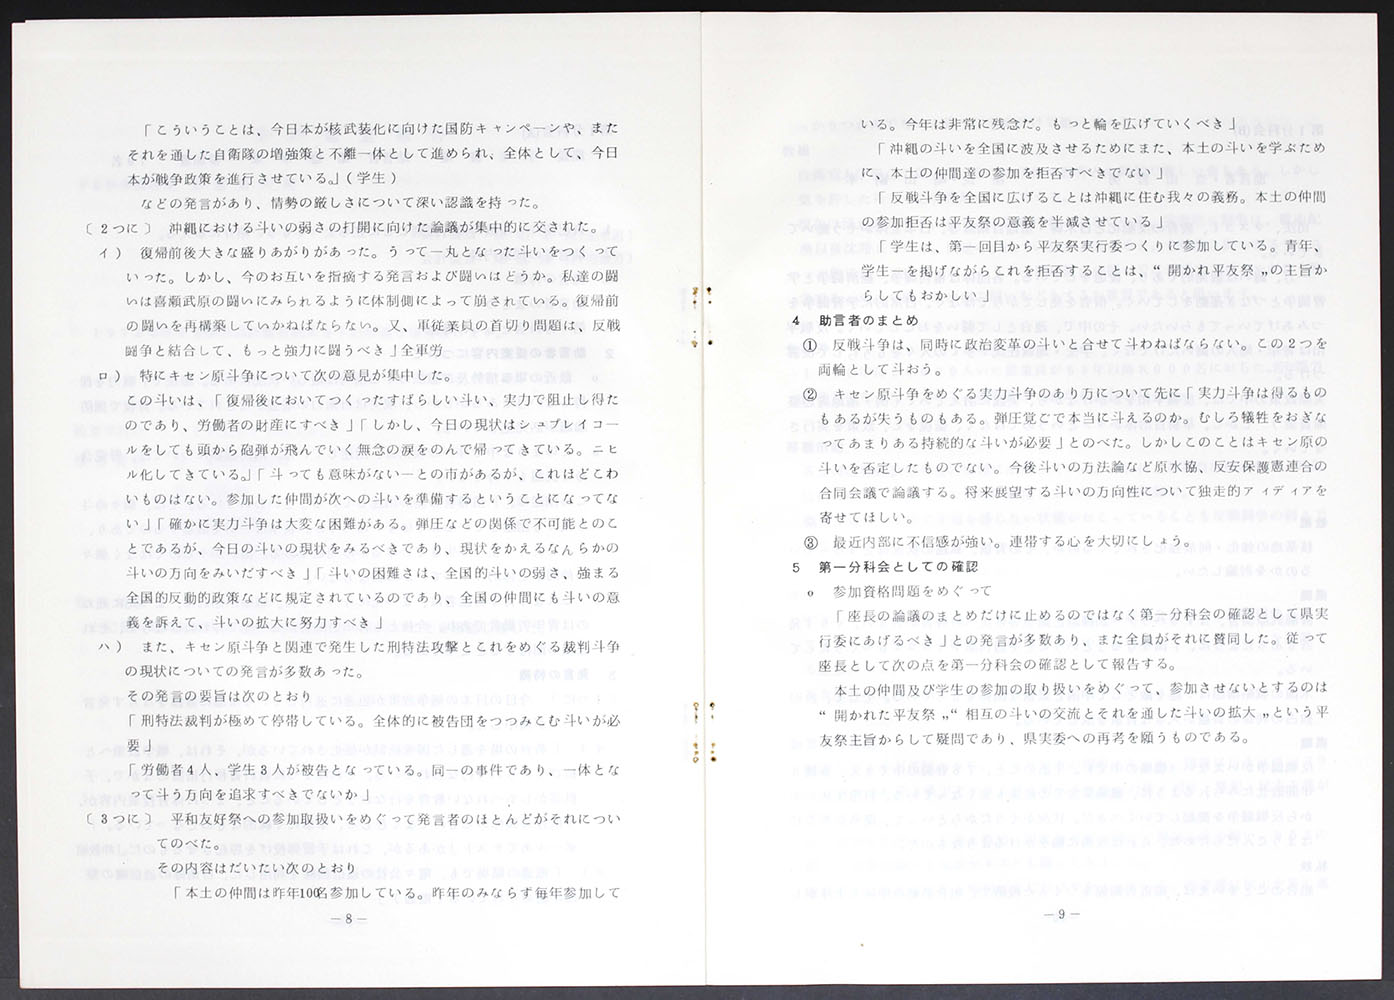 「こういうことは、今日本が核武装化に向けた国防キャンペーンや、また
それを通した自衛隊の増強策と不離一体として進められ、全体として、今日
本が戦争政策を進行させている。」(学生)
などの発言があり、情勢の厳しさについて深い認識を持った。
〔2つに〕 沖縄における斗いの弱さの打開に向けた論議が集中的に交された。
イ) 復帰前後大きな盛りあがりがあった。うって一丸となった斗いをつくって
いった。しかし、今のお互いを指摘する発言および闘いはどうか。私達の闘
いは喜瀬武原の闘いにみられるように体制側によって崩されている。復帰前
の闘いを再構築していかねばならない。又、軍従業員の首切り問題は、反戦
闘争と結合して、もっと強力に闘うべき」全軍労
ロ) 特にキセン原斗争について次の意見が集中した。
この斗いは、「復帰後においてつくったすばらしい斗い、実力で阻止し得た
のであり、労働者の財産にすべき」「しかし、今日の現状はシュプレイコー
ルをしても頭から砲弾が飛んでいく無念の涙をのんで帰ってきている。ニヒ
ル化してきている。」「斗っても意味がない―との市があるが、これほどこわ
いものはない。参加した仲間が次への斗いを準備するということになってな
い」「確かに実力斗争は大変な困難がある。弾圧などの関係で不可能とのこ
とであるが、今日の斗いの現状をみるべきであり、現状をかえるなんらかの
斗いの方向をみいだすべき」「斗いの困難さは、全国的斗いの弱さ、強まる
全国的反動的政策などに規定されているのであり、全国の仲間にも斗いの意
義を訴えて、斗いの拡大に努力すべき」
ハ) また、キセン原斗争と関連で発生した刑特法攻撃とこれをめぐる裁判斗争
の現状についての発言が多数あった。
その発言の要旨は次のとおり
「刑特法裁判が極めて停滞している。全体的に被告団をつつみこむ斗いが必
要」
「労働者4人、学生3人が被告となっている。同一の事件であり、一体とな
って斗う方向を追求すべきでないか」
〔3つに〕 平和友好祭への参加取扱いをめぐって発言者のほとんどがそれについ
てのべた。
その内容はだいたい次のとおり
「本土の仲間は昨年100名参加している。昨年のみならず毎年参加して
―8―
いる。今年は非常に残念だ。もっと輪を広げていくべき」
「沖縄の斗いを全国に波及させるためにまた、本土の斗いを学ぶため
に、本土の仲間達の参加を拒否すべきでない」
「反戦斗争を全国に広げることは沖縄に住む我々の義務。本土の仲間
の参加拒否は平友祭の意義を半減させている」
「学生は、第一回目から平友祭実行委つくりに参加している。青年、
学生―を掲げながらこれを拒否することは、“開かれ平友祭〟の主旨か
らしてもおかしい」
4 助言者のまとめ
① 反戦斗争は、同時に政治変革の斗いと合せて斗わねばならない。この2つを
両輪として斗おう。
② キセン原斗争をめぐる実力斗争のあり方について先に「実力斗争は得るもの
もあるが失うものもある。弾圧覚ごで本当に斗えるのか。むしろ犠牲をおぎな
ってあまりある持続的な斗いが必要」とのべた。しかしこのことはキセン原の
斗いを否定したものでない。今後斗いの方法論など原水協、反安保護憲連合の
合同会議で論議する。将来展望する斗いの方向性について独走的アィディアを
寄せてほしい。
③ 最近内部に不信感が強い。連帯する心を大切にしょう。
5 第一分科会としての確認
o 参加資格問題をめぐって
「座長の論議のまとめだけに止めるのではなく第一分科会の確認として県実
行委にあげるべき」との発言が多数あり、また全員がそれに賛同した。従って
座長として次の点を第一分科会の確認として報告する。
本土の仲間及び学生の参加の取り扱いをめぐって、参加させないとするのは
“開かれた平友祭〟“相互の斗いの交流とそれを通した斗いの拡大〟という平
友祭主旨からして疑問であり、県実委への再考を願うものである。
―9―